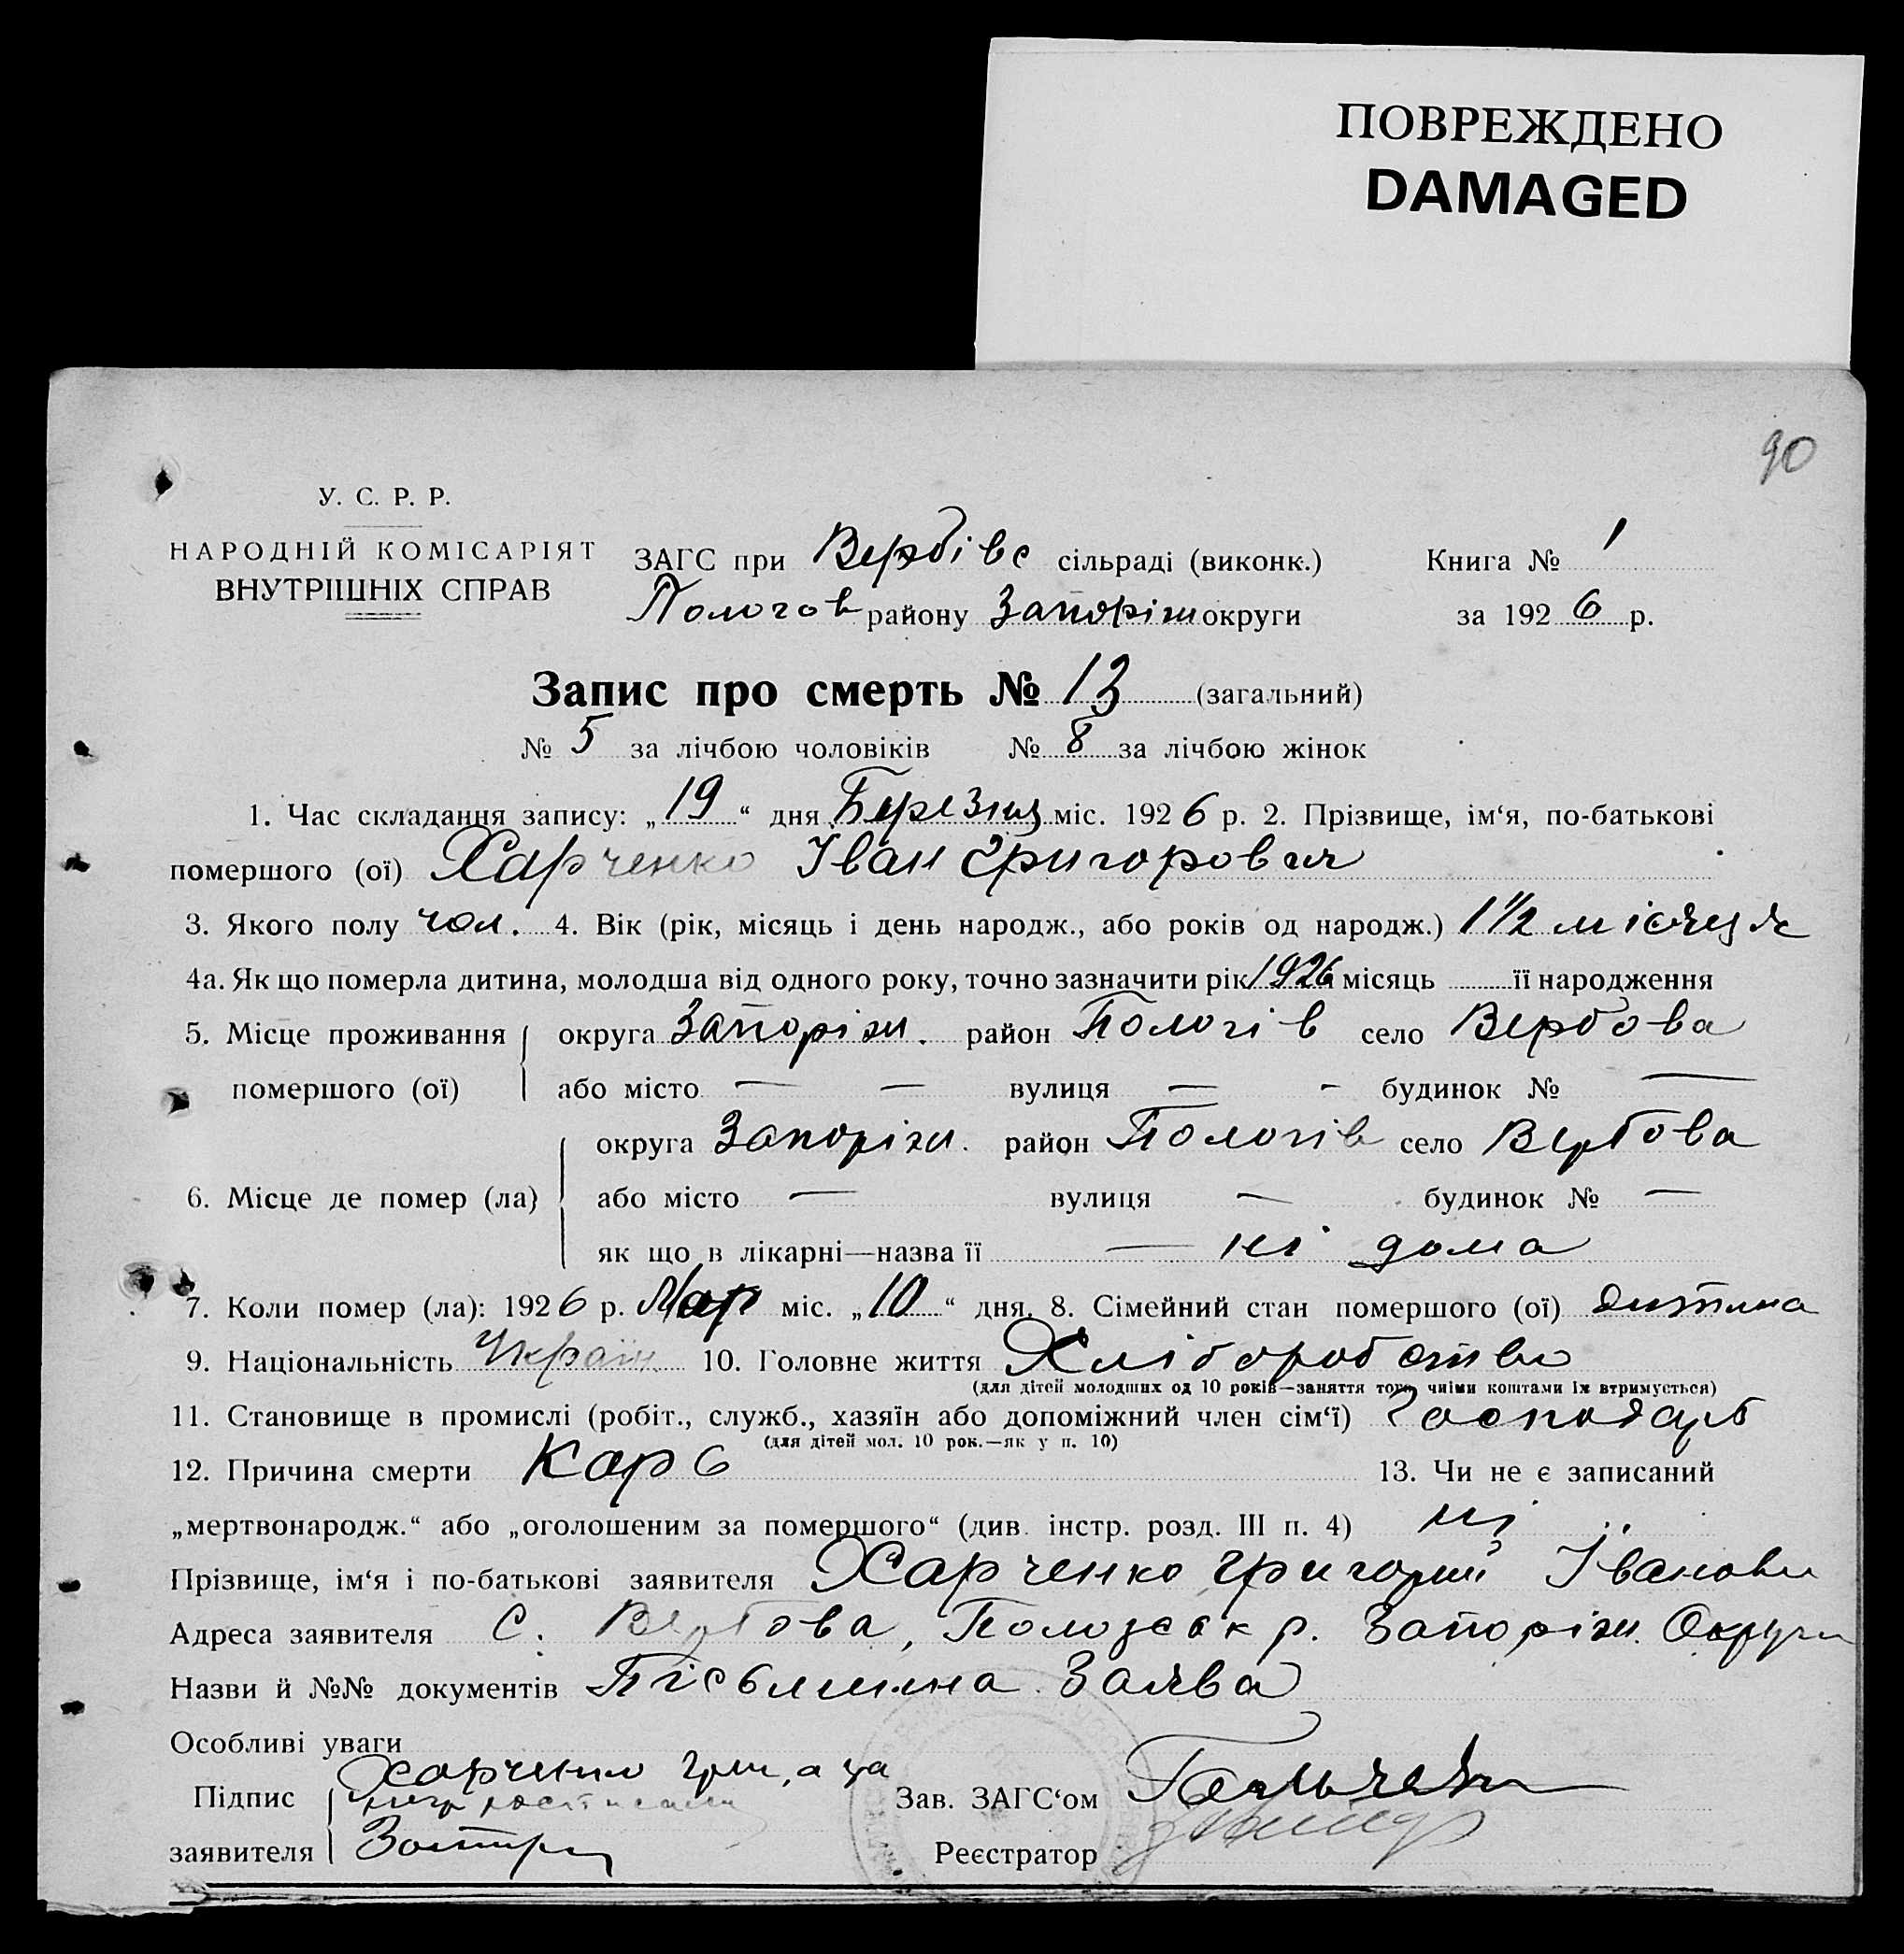 ПОВРЕЖДЕНО
DAMAGED
90
У. С. Р. Р.
НАРОДНІЙ КОМІСАРІЯТ
ВНУТРІШНІХ СПРАВ
ЗАГС при Вербівс сільраді (виконк.) Книга № 1
Пологов району Запоріж округи за 1926 р.
Запис про смерть № 13 (загальний)
№ 5 за лічбою чоловіків № 8 за лічбою жінок
1. Час складання запису: „19“ дня Березня міс. 1926 р. 2. Прізвище, ім‘я, по-батькові
помершого (ої) Харченко Іван Григорович
3. Якого полу чол. 4. Вік (рік, місяць і день народж., або років од народж.) 1 1/2 місяця
4а. Як що померла дитина, молодша від одного року, точно зазначити рік 1926 місяць її народження
5. Місце проживання округа Запоріж. район Пологів село Вербова
помершого (ої) або місто — — вулиця — - будинок № —
округа Запоріж. район Пологів село Вербова
6. Місце де помер (ла) або місто — вулиця — будинок № —
як що в лікарні—назва її — ні дома
7. Коли помер (ла): 1926 р. Мар міс. „10“ дня. 8. Сімейний стан помершого (ої) дитина
9. Національність Україн. 10. Головне життя Хліборобство
(для дітей молодших од 10 років—заняття того, чиїми коштами їх втримується)
11. Становище в промислі (робіт., служб., хазяїн або допоміжний член сім‘ї) Господарь
(для дітей мол. 10 рок.—як у п. 10)
12. Причина смерти Кор 13. Чи не є записаний
„мертвонародж.“ або „оголошеним за помершого“ (див. інстр. розд. III п. 4) ні
Прізвище, ім‘я і по-батькові заявителя Харченко Григорий Іванови
Адреса заявителя с. Вербова, р. Запоріж. Округи
Назви й №№ документів Заява
Особливі уваги
Харченко Гри, а за
Підпис Зав. ЗАГС‘ом
заявителя Реєстратор